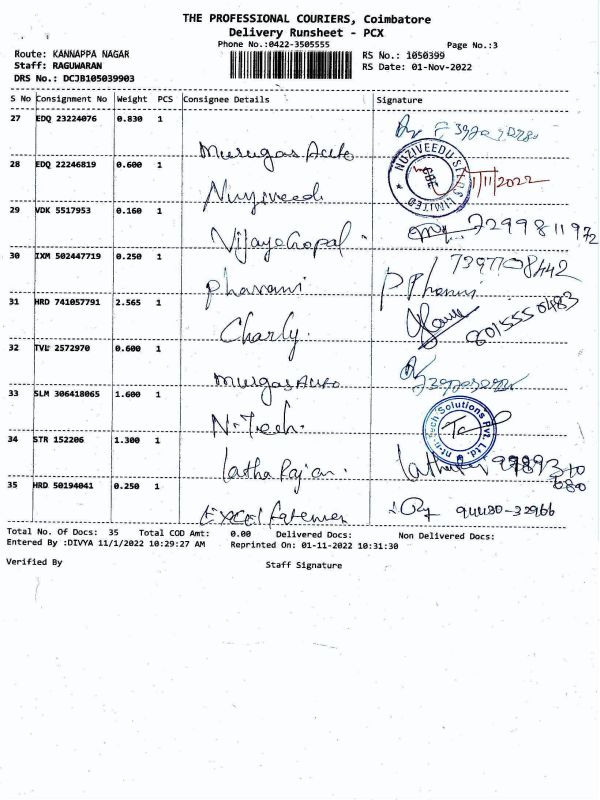 THE PROFESSIONAL COURIERS, Coimbatore
Delivery Runsheet - PCX
Phone No.:0422-3505555
Page No.:3
Route: KANNAPPA NAGAR
Staff: RAGUWARAN
DRS No.: DCJB105039903
RS No.: 1050399
RS Date: 01-Nov-2022
S No Consignment No Weight PCS Consignee Details Signature
27 EDQ 23224076 0.830 1
Murugas Auto
28 EDQ 22246819 0.600 1
Nuziveedi
NUZIVEEDU SEEDS LIMITED
CBE
1/11/2022
29 VDK 5517953 0.160 1
VijayaGopal
7299811972
30 IXM 502447719 0.250 1
7397708442
Pharani
31 HRD 741057791 2.565 1
Charly.
8015550483
32 TVL 2572970 0.600 1
Murugas Auto
33 SLM 306418065 1.600 1
N-Tech.
Tech Solutions Pvt. Ltd.
34 STR 152206 1.300 1
Latha Rajan.
35 HRD 50194041 0.250 1
Excel
94480-32966
Total No. Of Docs: 35 Total COD Amt: 0.00 Delivered Docs: Non Delivered Docs:
Entered By :DIVYA 11/1/2022 10:29:27 AM Reprinted On: 01-11-2022 10:31:30
Verified By
Staff Signature